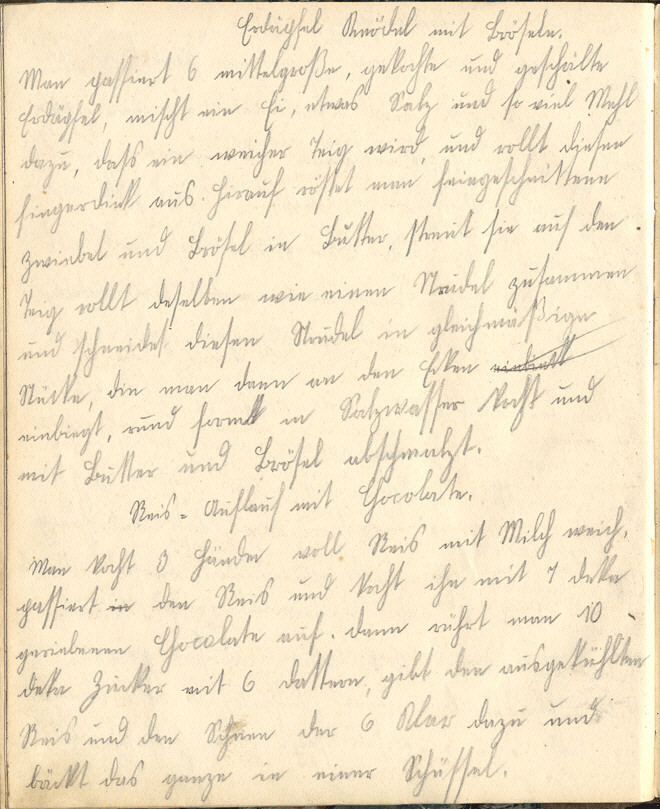 Erdäpfel Knödel mit Bröseln.
Man passiert 6 mittelgroße, gekochte und geschälte
Erdäpfel, mischt ein Ei, etwas Salz und so viel Mehl
dazu, dass ein weicher Teig wird, und rollt diesen
fingerdick aus. Hirauf röstet man feingeschnittene
Zwiebel und Brösel in Butter, streut sie auf den
Teig rollt deselben wie einen Strudel zusammen
und schneidet diesen Strudel in gleichmäßige
Stücke, die man dann an den Ecken eindrückt
einbiegt, rund formt in Salzwasser kocht und
mit Butter und Brösel abschmalzt.
Reis-Auflauf mit Chocolate.
Man kocht 3 Hände voll Reis mit Milch weich,
passiert in den Reis und kocht ihn mit 7 deka
geriebenen Chocolate auf. dann rührt man 10
deka Zucker mit 6 dottern, gibt den ausgekühlten
Reis und den Schnee der 6 Klar dazu und
bäckt das ganze in einer Schüssel.